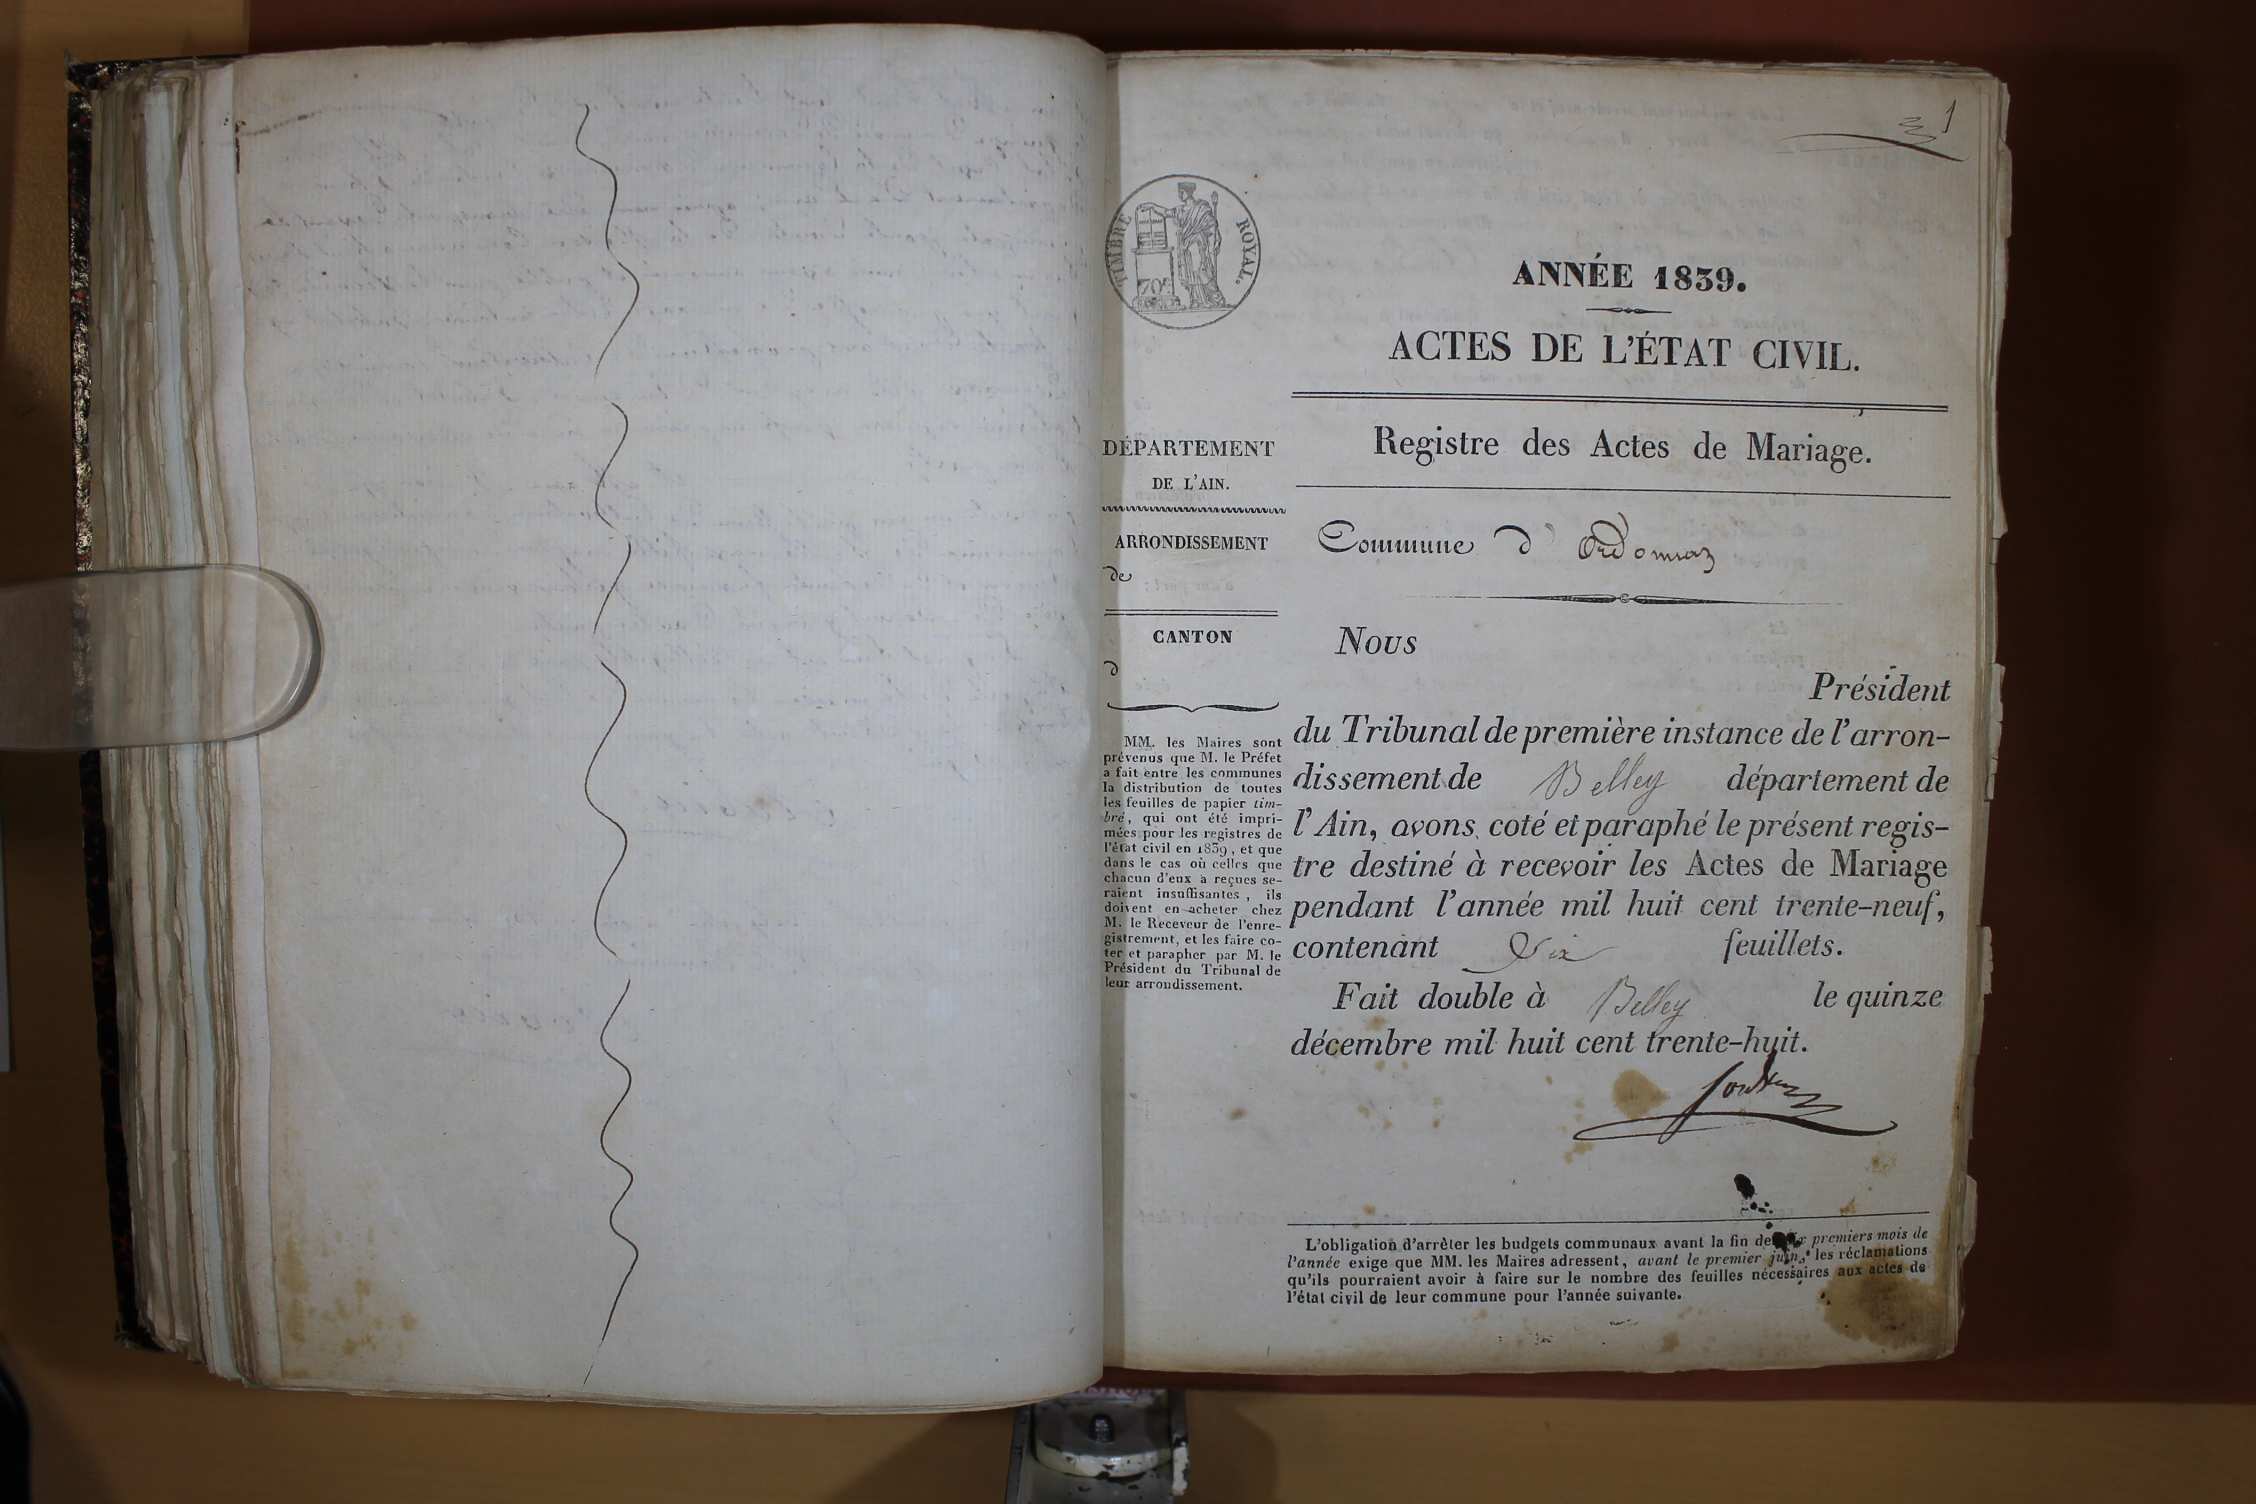 1
TIMBRE ROYAL.
70c
ANNÉE 1839.
ACTES DE L'ÉTAT CIVIL.
Registre des Actes de Mariage.
DÉPARTEMENT
DE L'AIN.
ARRONDISSEMENT
de
CANTON
d
MM. les Maires sont
prévenus que M. le Préfet
a fait entre les communes
la distribution de toutes
les feuilles de papier tim-
bré, qui ont été impri-
mées pour les registres de
l'état civil en 1839, et que
dans le cas où celles que
chacun d'eux a reçues se-
raient insuffisantes, ils
doivent en acheter chez
M. le Receveur de l'enre-
gistrement, et les faire co-
ter et parapher par M. le
Président du Tribunal de
leur arrondissement.
Commune d'Ordonnaz
Nous
Président
du Tribunal de première instance de l'arron-
dissement de Belley département de
l'Ain, avons coté et paraphé le présent regis-
tre destiné à recevoir les Actes de Mariage
pendant l'année mil huit cent trente-neuf,
contenant feuillets.
Fait double à Belley le quinze
décembre mil huit cent trente-huit.
L'obligation d'arrêter les budgets communaux avant la fin de premiers mois de
l'année exige que MM. les Maires adressent, avant le premier juin, les réclamations
qu'ils pourraient avoir à faire sur le nombre des feuilles nécessaires aux actes de
l'état civil de leur commune pour l'année suivante.